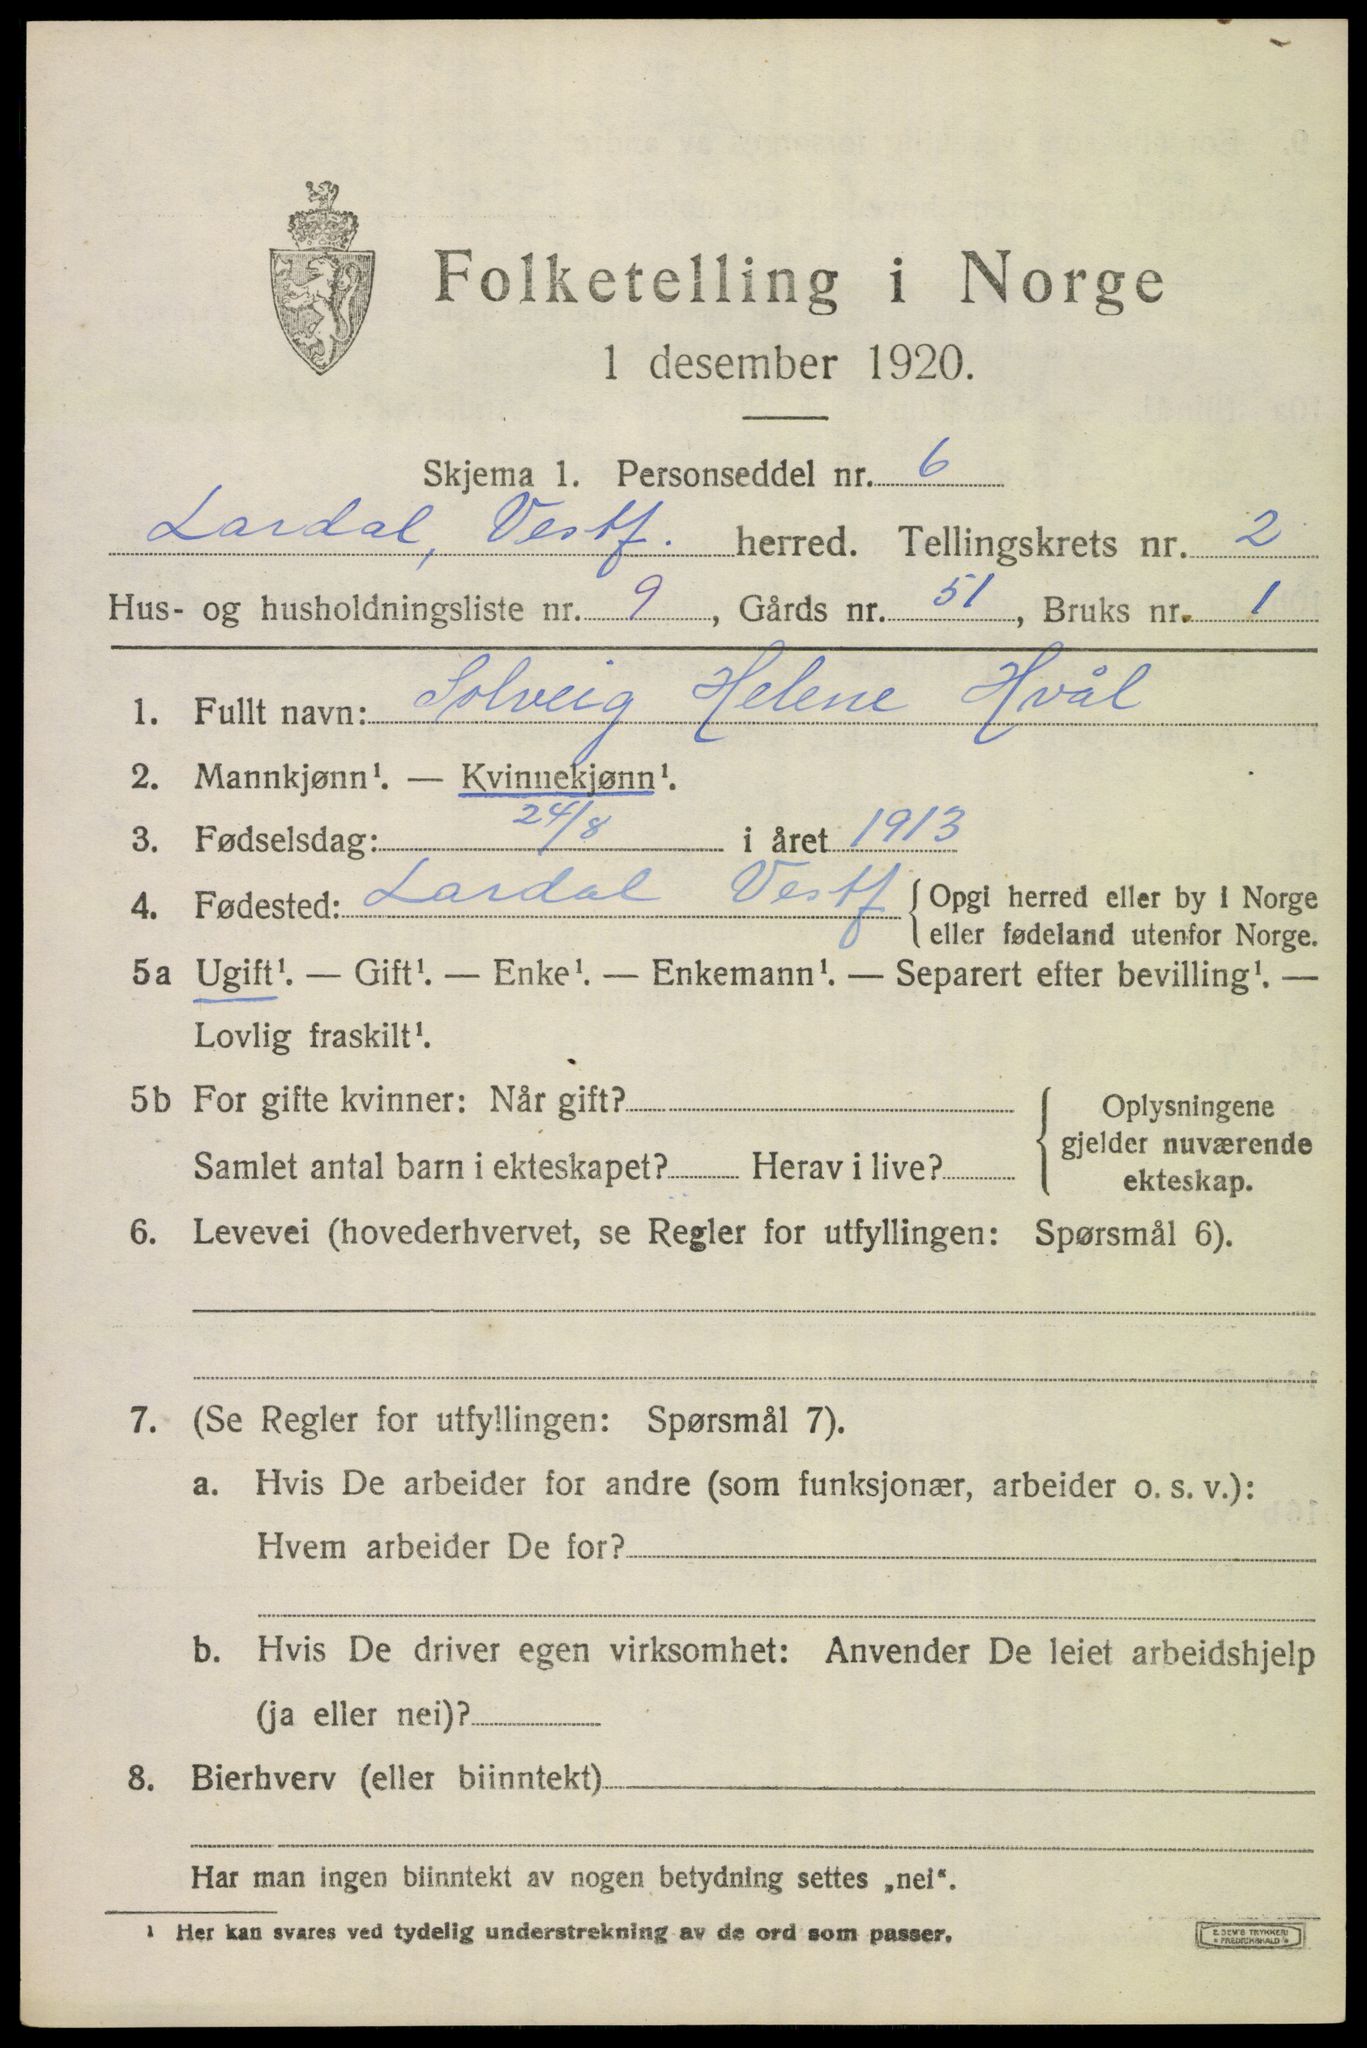 Folketelling i Norge
1 desember 1920.
Skjema 1. Personseddel nr. 6
Lardal, Vestf. herred. Tellingskrets nr. 2
Hus- og husholdningsliste nr. 9, Gårds nr. 51, Bruks nr. 1
1. Fullt navn: Solveig Helene Hvål
2. Mannkjønn¹. — Kvinnekjønn¹.
3. Fødselsdag: 24/8 i året 1913
4. Fødested: Lardal Vestf { Opgi herred eller by i Norge
eller fødeland utenfor Norge.
5a Ugift¹. — Gift¹. — Enke¹. — Enkemann¹. — Separert efter bevilling¹. —
Lovlig fraskilt¹.
5b For gifte kvinner: Når gift?
Samlet antal barn i ekteskapet? Herav i live?
Oplysningene
gjelder nuværende
ekteskap.
6. Levevei (hovederhvervet, se Regler for utfyllingen: Spørsmål 6).
7. (Se Regler for utfyllingen: Spørsmål 7).
a. Hvis De arbeider for andre (som funksjonær, arbeider o. s. v.):
Hvem arbeider De for?
b. Hvis De driver egen virksomhet: Anvender De leiet arbeidshjelp
(ja eller nei)?
8. Bierhverv (eller biinntekt)
Har man ingen biinntekt av nogen betydning settes „nei“.
¹ Her kan svares ved tydelig understrekning av de ord som passer.
E. SEM'S TRYKKERI
FREDRIKSHALD